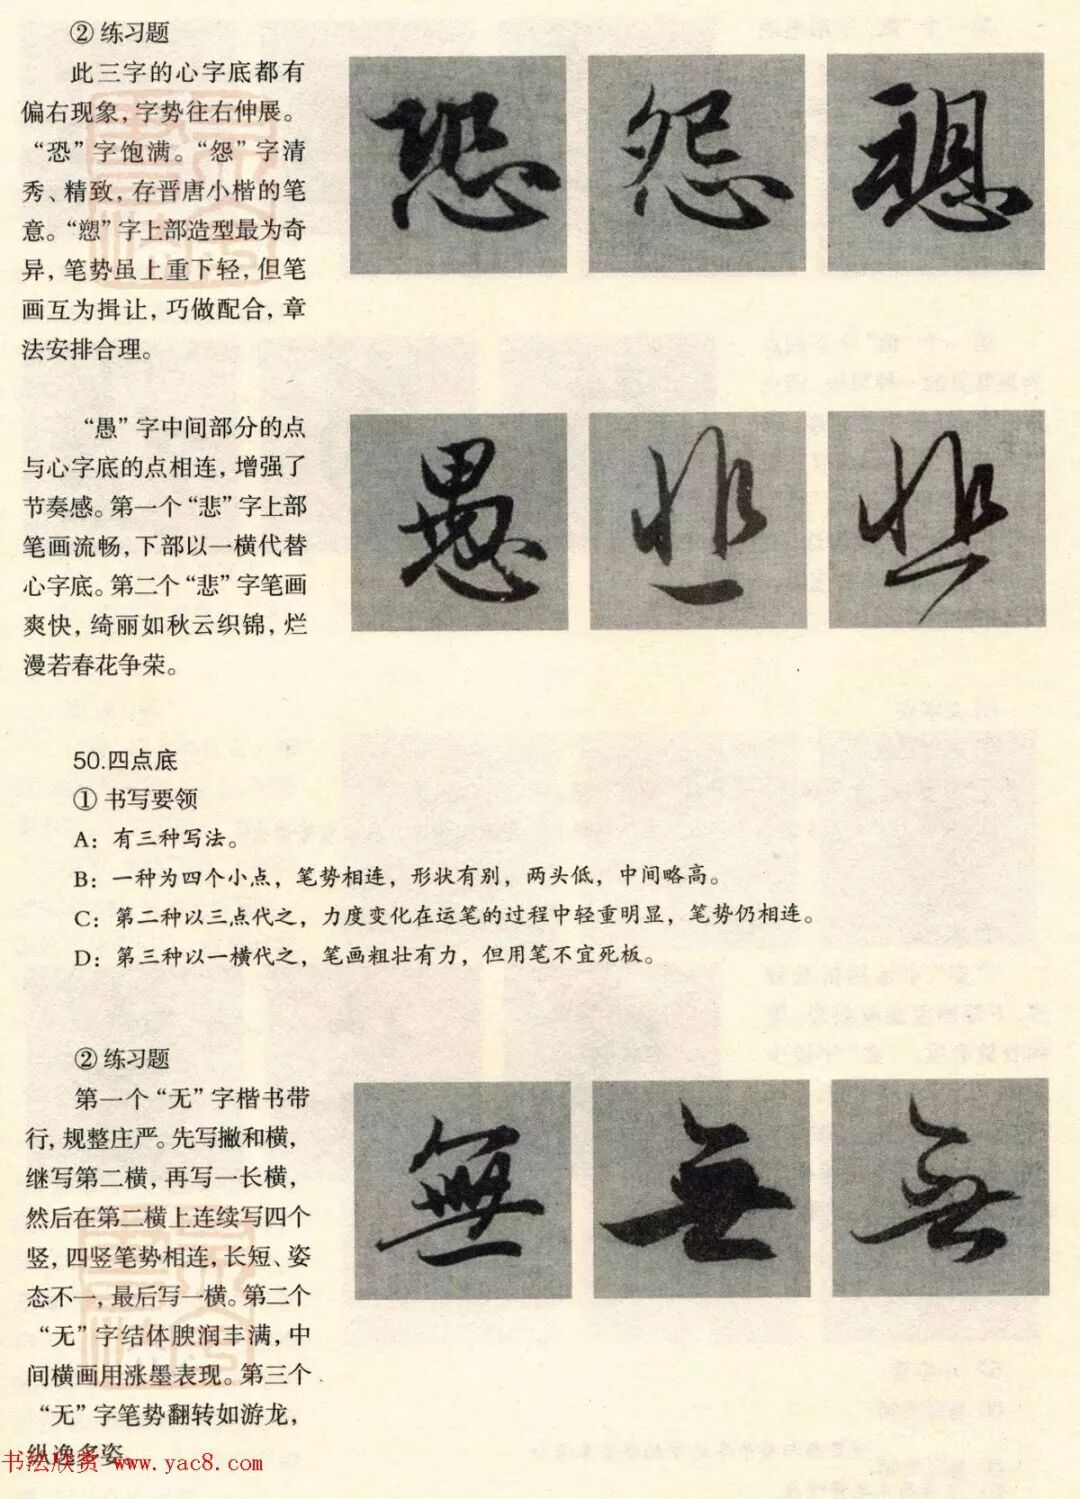 ② 练习题
此三字的心字底都有
偏右现象，字势往右伸展。
“恐”字饱满。“怨”字清
秀、精致，存晋唐小楷的笔
意。“愬”字上部造型最为奇
异，笔势虽上重下轻，但笔
画互为揖让，巧做配合，章
法安排合理。
“愚”字中间部分的点
与心字底的点相连，增强了
节奏感。第一个“悲”字上部
笔画流畅，下部以一横代替
心字底。第二个“悲”字笔画
爽快，绮丽如秋云织锦，烂
漫若春花争荣。
50.四点底
① 书写要领
A：有三种写法。
B：一种为四个小点，笔势相连，形状有别，两头低，中间略高。
C：第二种以三点代之，力度变化在运笔的过程中轻重明显，笔势仍相连。
D：第三种以一横代之，笔画粗壮有力，但用笔不宜死板。
② 练习题
第一个“无”字楷书带
行，规整庄严。先写撇和横，
继写第二横，再写一长横，
然后在第二横上连续写四个
竖，四竖笔势相连，长短、姿
态不一，最后写一横。第二个
“无”字结体腴润丰满，中
间横画用涨墨表现。第三个
“无”字笔势翻转如游龙，
纵逸多姿。
书法欣赏 www.yac8.com